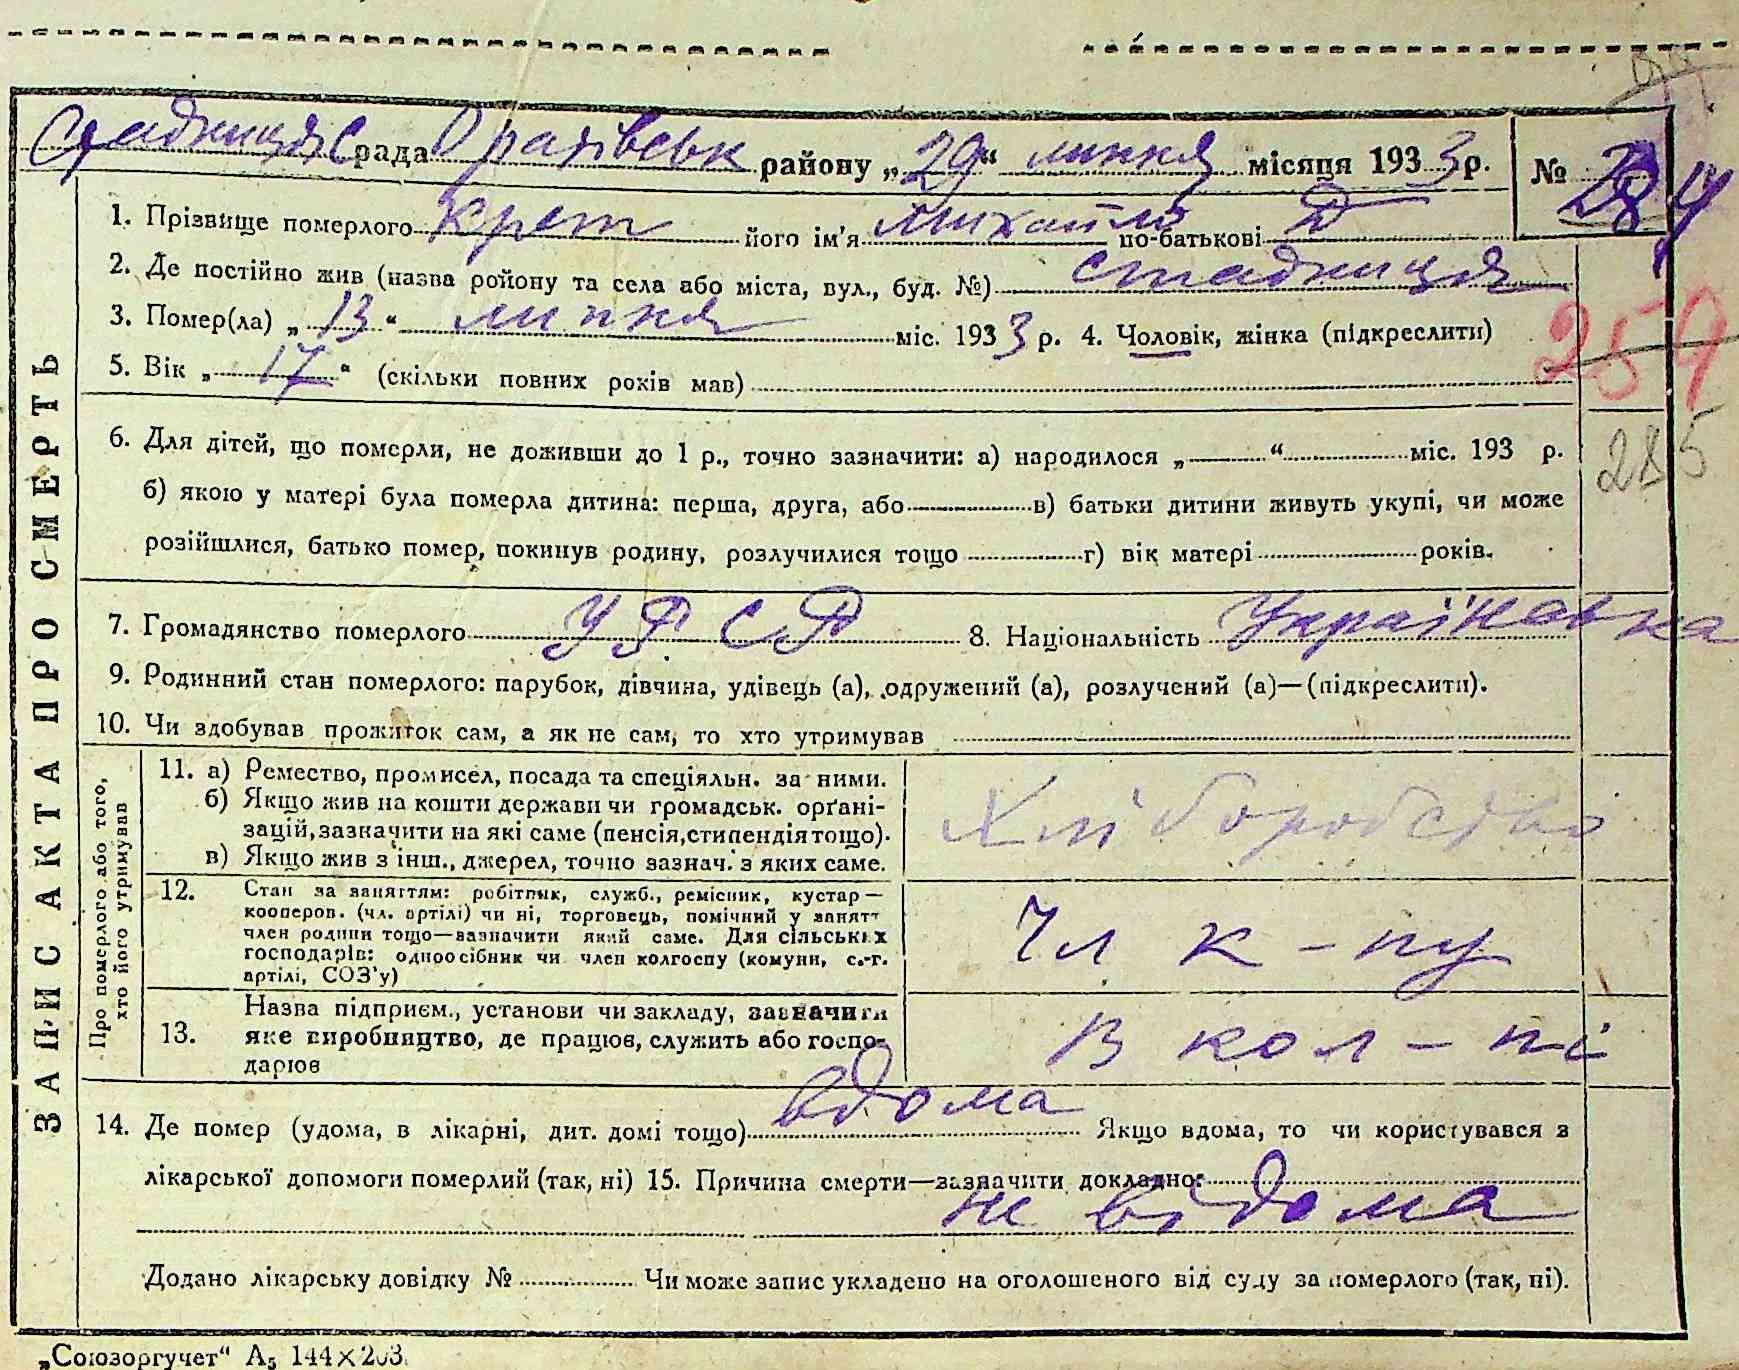 Стадниця С рада Оратівськ району „29“ липня місяця 1933 р. № 284
1. Прізвище померлого Крет його ім'я Михайло по-батькові Д
2. Де постійно жив (назва ройону та села або міста, вул., буд. №) Стадниця
3. Помер(ла) „13“ липня міс. 1933 р. 4. Чоловік, жінка (підкреслити)
259
5. Вік „17“ (скільки повних рохів мав)
6. Для дітей, що померли, не доживши до 1 р., точно зазначити: а) народилося „ “ міс. 193 р.
285
б) якою у матері була померла дитина: перша, друга, або в) батьки дитини живуть укупі, чи може
розійшлися, батько помер, покинув родину, розлучилися тощо г) вік матері років.
7. Громадянство померлого УРСР 8. Національність Українська
9. Родинний стан померлого: парубок, дівчина, удівець (а), одружений (а), розлучений (а)—(підкреслити).
10. Чи здобував прожиток сам, а як не сам, то хто утримував
ЗАПИС АКТА ПРО СМЕРТЬ
Про померлого або того, хто його утримував
11. а) Ремество, промисел, посада та спеціяльн. за ними.
б) Якщо жив на кошти держави чи громадськ. орґані-
зацій, зазначити на які саме (пенсія, стипендія тощо).
в) Якщо жив з інш., джерел, точно зазнач. з яких саме.
Хліборобство
12. Стан за заняттям: робітник, служб., ремісник, кустар—
кооперов. (чл. артілі) чи ні, торговець, помічний у занятт
член родини тощо—зазначити який саме. Для сільських
господарів: одноосібник чи член колгоспу (комуни, с.-г.
артілі, СОЗ'у)
Чл к-пу
13. Назва підприєм., установи чи закладу, зазначити
яке виробництво, де працюв, служить або госпо-
дарюв
В кол-пі
14. Де помер (удома, в лікарні, дит. домі тощо) вдома Якщо вдома, то чи користувався з
лікарської допомоги померлий (так, ні) 15. Причина смерти—зазначити докладно:
не відома
Додано лікарську довідку № Чи може запис укладено на оголошеного від суду за померлого (так, ні).
„Союзоргучет“ А₅ 144×203.